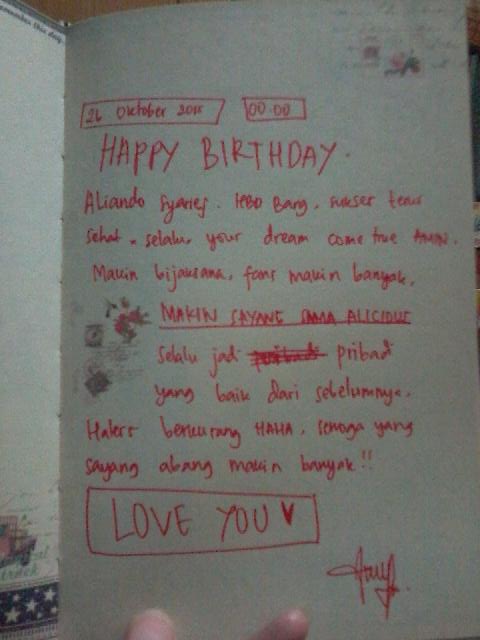 remember this day.
26 Oktober 2015 00.00
HAPPY BIRTHDAY.
Aliando Syarief. HBD Bang, sukses terus
sehat selalu, your dream come true AMIN.
Makin bijaksana, fans makin banyak,
MAKIN SAYANG SAMA ALICIOUS
selalu jadi pribadi
yang baik dari sebelumnya.
Haters berkurang HAHA, semoga yang
sayang abang makin banyak!!
LOVE YOU ♥